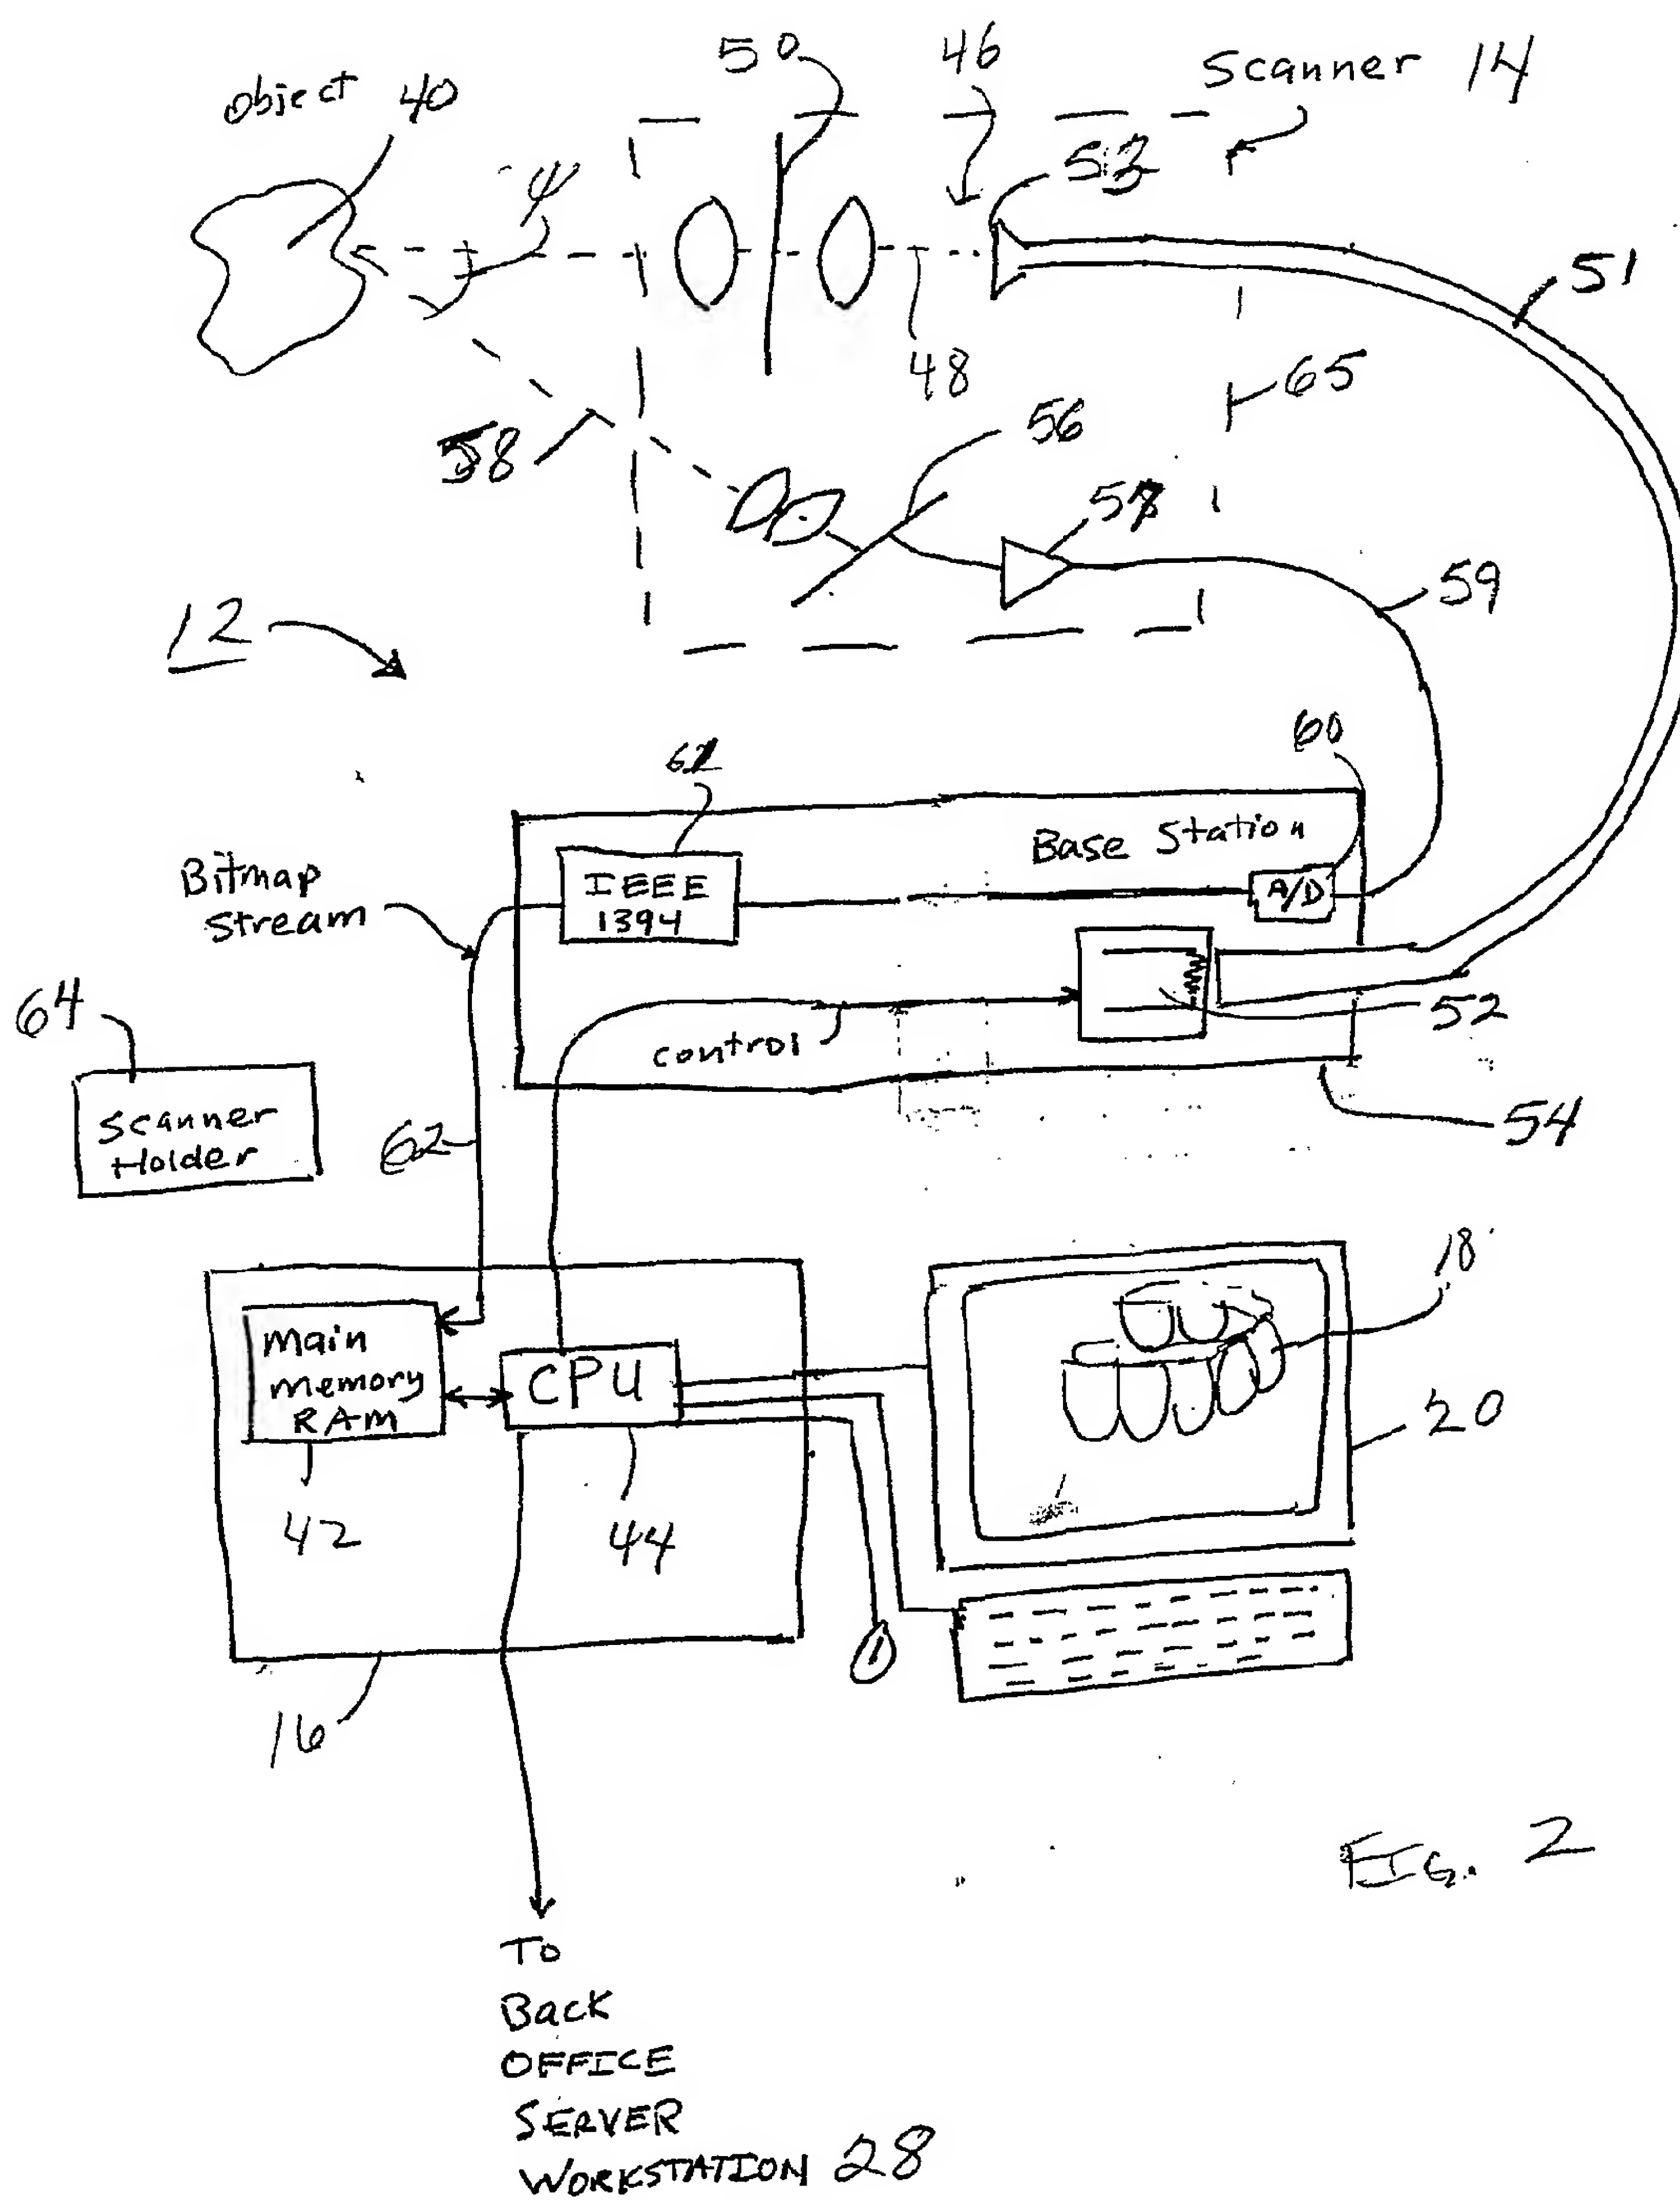 50
46
Scanner 14
object 40
53
φ
51
48
65
58
56
57
59
12
60
Base Station
Bitmap
Stream
IEEE
1394
A/D
64
52
control
Scanner
Holder
62
54
18
Main
Memory
RAM
CPU
20
42
44
16
FIG. 2
To
Back
OFFICE
SERVER
WORKSTATION 28